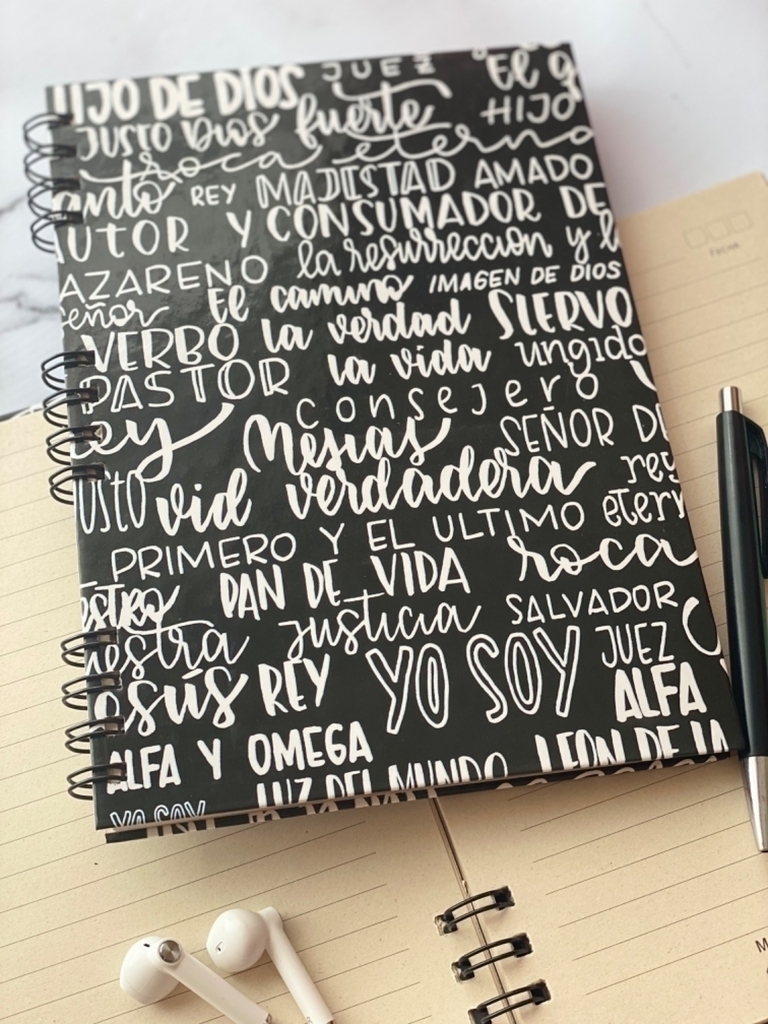 HIJO DE DIOS JUEZ El g
JUSTO DIOS fuerte HIJO
roca eterna
anto REY MAJESTAD AMADO
AUTOR Y CONSUMADOR DE
AZARENO la resurrección y l
eñor El camino IMAGEN DE DIOS
VERBO la verdad SIERVO
PASTOR la vida ungido
consejero
ey Mesías SEÑOR DE
usto vid verdadera rey
PRIMERO Y EL ULTIMO etern
PAN DE VIDA roca
estro
uestra justicia SALVADOR
esús REY YO SOY JUEZ
ALFA
ALFA Y OMEGA LEON DE
YO SOY LUZ DEL MUNDO
FECHA